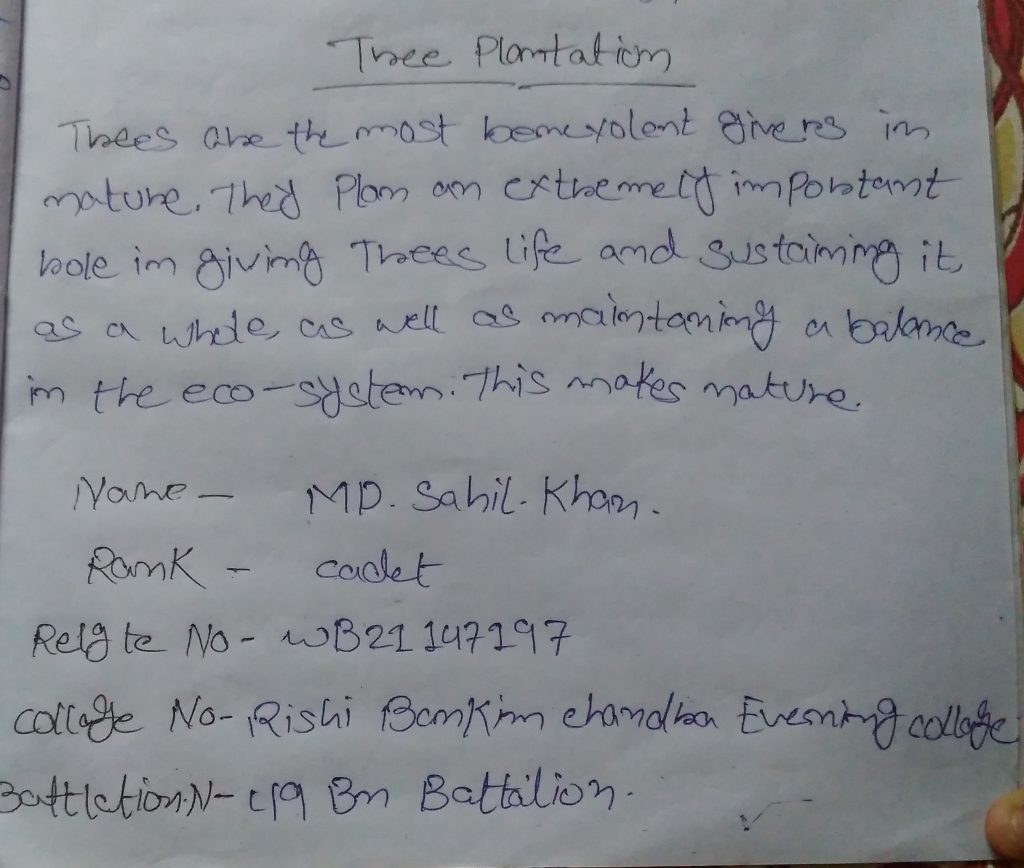 Tree Plantation
Trees are the most benevolent giveres in
nature. They Plan an extremely important
role in giving Trees life and sustaining it,
as a whole, as well as maintaning a balance
in the eco-system. This makes nature.
Name - MD. Sahil. Khan.
Rank - cadet
Relg te No - WB21 147197
collage No - Rishi Bankim chandra Evening collage
Battlction.N - 49 Bn Battalion.